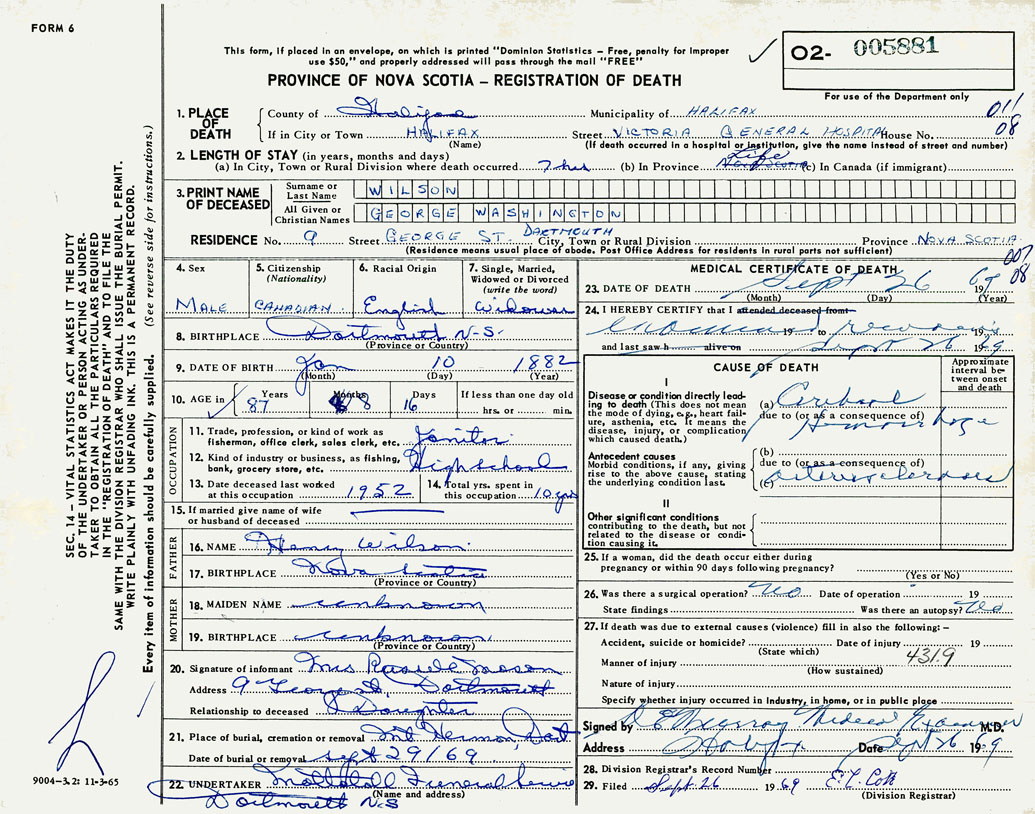 FORM 6
This form, if placed in an envelope, on which is printed "Dominion Statistics – Free, penalty for improper
use $50," and properly addressed will pass through the mail "FREE"
O2- 005881
For use of the Department only
PROVINCE OF NOVA SCOTIA – REGISTRATION OF DEATH
011
08
1. PLACE OF DEATH
County of Halifax Municipality of HALIFAX
If in City or Town HALIFAX Street VICTORIA GENERAL HOSPITAL House No.
(Name) (If death occurred in a hospital or institution, give the name instead of street and number)
2. LENGTH OF STAY (in years, months and days)
(a) In City, Town or Rural Division where death occurred 7 hrs (b) In Province Life Nova Scotia (c) In Canada (if immigrant)
3. PRINT NAME OF DECEASED
Surname or Last Name WILSON
All Given or Christian Names GEORGE WASHINGTON
RESIDENCE No. 9 Street GEORGE ST. DARTMOUTH City, Town or Rural Division Province NOVA SCOTIA
(Residence means usual place of abode. Post Office Address for residents in rural parts not sufficient)
007
08
4. Sex
MALE
5. Citizenship
(Nationality)
CANADIAN
6. Racial Origin
English
7. Single, Married,
Widowed or Divorced
(write the word)
Widower
8. BIRTHPLACE Dartmouth N-S.
(Province or Country)
9. DATE OF BIRTH Jan 10 1882
(Month) (Day) (Year)
10. AGE in 87 Years Months 8 16 Days If less than one day old
hrs. or min.
OCCUPATION
11. Trade, profession, or kind of work as
fisherman, office clerk, sales clerk, etc. Janitor
12. Kind of industry or business, as fishing,
bank, grocery store, etc. High school
13. Date deceased last worked
at this occupation 1952
14. Total yrs. spent in
this occupation 10 yrs
15. If married give name of wife
or husband of deceased
FATHER
16. NAME Henry Wilson
17. BIRTHPLACE Nova Scotia
(Province or Country)
MOTHER
18. MAIDEN NAME unknown
19. BIRTHPLACE unknown
(Province or Country)
20. Signature of informant Mrs
Address 9 George St, Dartmouth
Relationship to deceased Daughter
21. Place of burial, cremation or removal Mt Hermon, Dart
Date of burial or removal Sept 29/69
22. UNDERTAKER Mattatall Funeral Service
(Name and address)
Dartmouth N-S
MEDICAL CERTIFICATE OF DEATH
23. DATE OF DEATH Sept 26 1969
(Month) (Day) (Year)
24. I HEREBY CERTIFY that I attended deceased from
examined 19 to records 19
and last saw h alive on Sept 26 1969
CAUSE OF DEATH
Approximate
interval be-
tween onset
and death
I
Disease or condition directly lead-
ing to death (This does not mean
the mode of dying, e.g., heart fail-
ure, asthenia, etc. It means the
disease, injury, or complication
which caused death.)
(a) Cerebral
due to (or as a consequence of)
Hemorrhage
Antecedent causes
Morbid conditions, if any, giving
rise to the above cause, stating
the underlying condition last.
(b)
due to (or as a consequence of)
(c) arteriosclerosis
II
Other significant conditions
contributing to the death, but not
related to the disease or condi-
tion causing it.
25. If a woman, did the death occur either during
pregnancy or within 90 days following pregnancy?
(Yes or No)
26. Was there a surgical operation? No Date of operation 19
State findings Was there an autopsy? No
27. If death was due to external causes (violence) fill in also the following:–
Accident, suicide or homicide? Date of injury 19
(State which) 4319
Manner of injury
(How sustained)
Nature of injury
Specify whether injury occurred in industry, in home, or in public place
Signed by Murray Medical Examiner M.D.
Address Halifax Date Sept 26 1969
28. Division Registrar's Record Number
29. Filed Sept 26 1969
(Division Registrar)
SEC. 14 – VITAL STATISTICS ACT MAKES IT THE DUTY
OF THE UNDERTAKER OR PERSON ACTING AS UNDER-
TAKER TO OBTAIN ALL THE PARTICULARS REQUIRED
IN THE "REGISTRATION OF DEATH" AND TO FILE THE
SAME WITH THE DIVISION REGISTRAR WHO SHALL ISSUE THE BURIAL PERMIT.
WRITE PLAINLY WITH UNFADING INK. THIS IS A PERMANENT RECORD.
Every item of information should be carefully supplied. (See reverse side for instructions.)
9004-3.2: 11-3-65